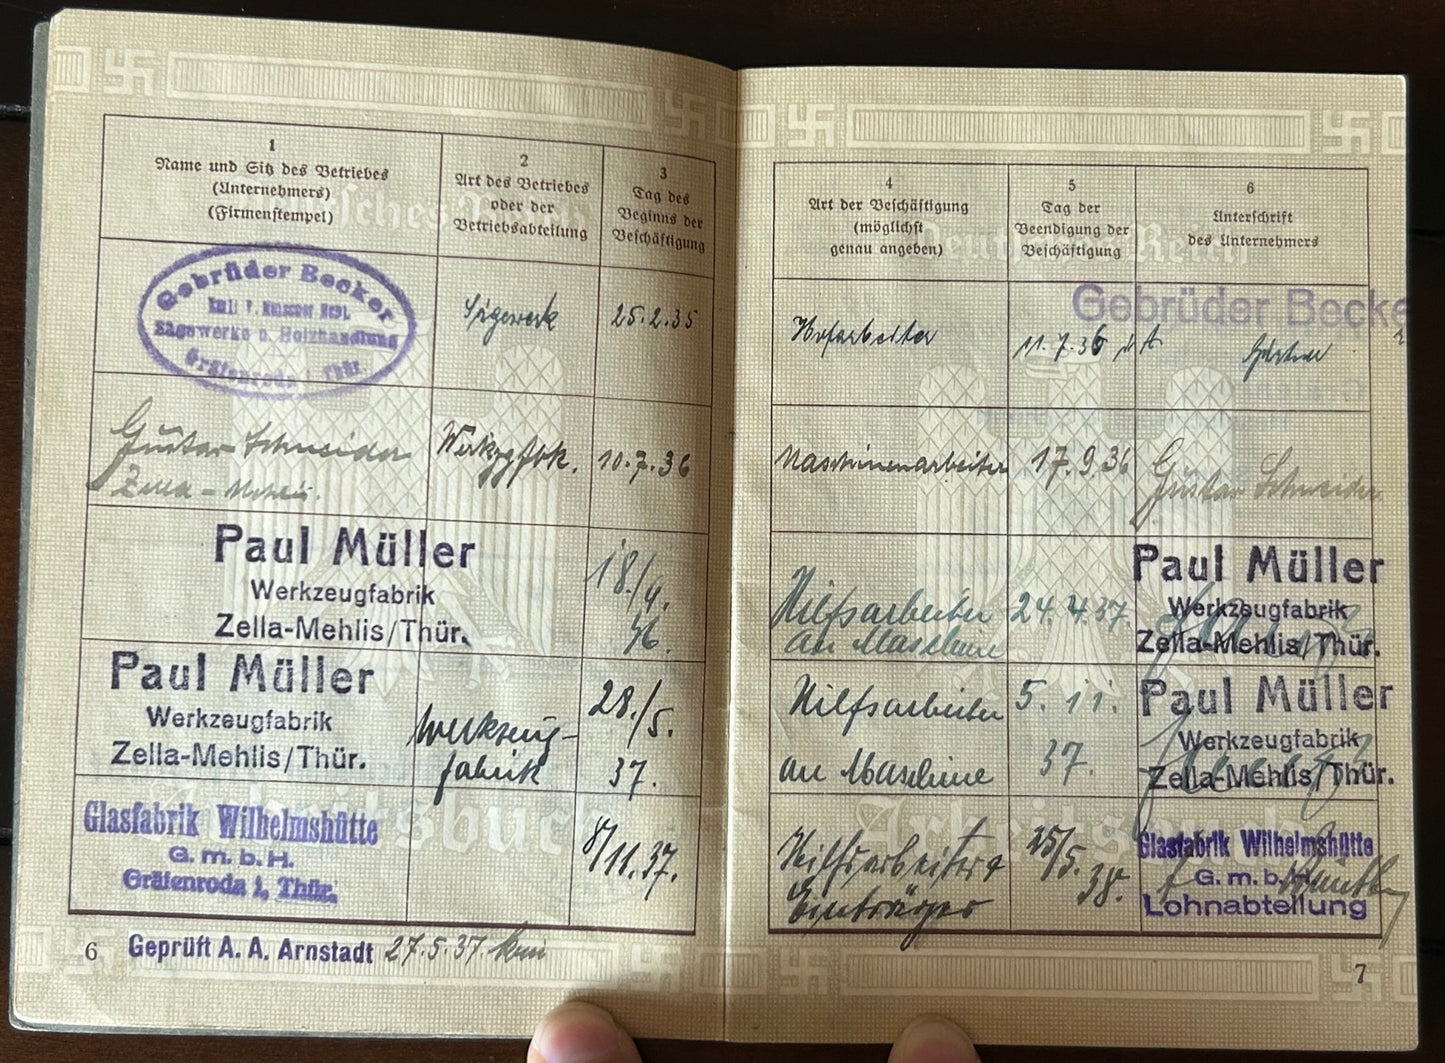 1
Name und Sitz des Betriebes
(Unternehmers)
(Firmenstempel)
2
Art des Betriebes
oder der
Betriebsabteilung
3
Tag des
Beginns der
Beschäftigung
Gebrüder Becker
Sägewerke u. Holzhandlung
Gräfenroda i. Thür.
Sägewerk
25.2.35
Gustav Schneider
Zella-Mehlis.
10.7.36
Paul Müller
Werkzeugfabrik
Zella-Mehlis/Thür.
18./9.
36.
Paul Müller
Werkzeugfabrik
Zella-Mehlis/Thür.
Werkzeug-
fabrik
28./5.
37.
Glasfabrik Wilhelmshütte
G. m. b. H.
Gräfenroda i. Thür.
8/11.37.
6
Geprüft A. A. Arnstadt 27.5.37
4
Art der Beschäftigung
(möglichst
genau angeben)
5
Tag der
Beendigung der
Beschäftigung
6
Unterschrift
des Unternehmers
Hofarbeiter
11.7.36
Gebrüder Becke
Maschinenarbeiter
17.9.36
Gustav Schneider
Hilfsarbeiter
an Maschine
24.4.37.
Paul Müller
Werkzeugfabrik
Zella-Mehlis/Thür.
Hilfsarbeiter
an Maschine
5.11.
37.
Paul Müller
Werkzeugfabrik
Zella-Mehlis/Thür.
Hilfsarbeiter
Einträger
25/5.
38.
Glasfabrik Wilhelmshütte
G. m. b. H.
Lohnabteilung
7